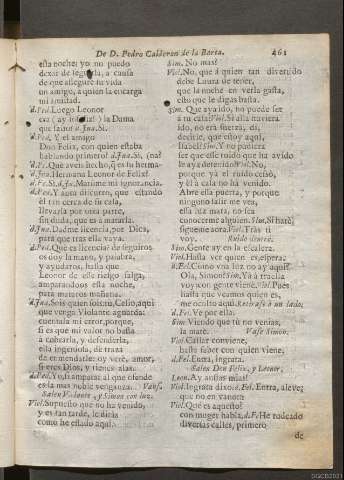 De D. Pedro Calderon de la Barca. 461
esta noche; yo no puedo
dexar de seguirla, a causa
de que assegure su vida
un amigo, a quien la encarga
mi amistad.
d. Ped. Luego Leonor
era (ay infeliz!) la Dama
que saliò? d. Jua. Si.
d. Ped. Y el amigo
Don Felix, con quien estaba
hablando primero? d. Jua. Si, què
d. Pe. Què aveis hecho, q̃ es tu herma-
d. Jua. Hermana Leonor de Felix?
d. Pe. Si. d. Ju. Matòme mi ignorancia.
d. Pe. Y aora discurro, que estando
él tan cerca de su casa,
llevarla por otra parte,
sin duda, que es a matarla.
d. Jua. Dadme licencia, por Dios,
para que tras ella vaya.
d. Ped. Què es licencia? de seguiros
os doy la mano, y palabra,
y ayudaros, hasta que
Leonor de esse riesgo salga,
amparandoos esta noche,
para mataros mañana.
d. Jua. Sois quien sois: tu, Celio, aqui
que venga Violante aguarda:
cuentala mi error, porque,
si es que mi valor no basta
a cobrarla, y defenderla,
ella ingeniosa, dè traza
de enmendarle: ay verè, amor,
si eres Dios, y tienes alas.
d. Ped. Yo, si amparar al que ofende
es la mas noble venganza. Vanse.
Salen Violante, y Simon con luz.
Viol. Supuesto que no ha venido,
y es tan tarde, le dirás
como he estado aqui.
Sim. No mas?
Viol. No, que à quien tan divertido
debe Laura de tener,
que la noche en verla gasta,
esto que le digas basta.
Sim. Que aya ido, no puede ser
a tu casa? Viol. Si allà huviera
ido, no era fuerza, di,
decirle, que estoy aqui,
Isabèl? Sim. Y no pudiera
ser que esse ruido que ha avido
le aya detenido? Viol. No,
porque ya el ruido cessò,
y èl à casa no ha venido.
Abre essa puerta, y porque
ninguno salir me vea,
essa luz mata, no sea
conocerme alguien. Sim. Si harè,
sigueme aora. Viol. Tràs ti
voy. Ruido dentro.
Sim. Gente ay en la escalera.
Viol. Hasta vèr quien es, espera.
d. Fel. Como una luz no ay aqui?
Ola, Simon? Sim. Yà à traella
voy con gente viene. Viol. Pues
hasta que veamos quien es,
me oculto aqui. Retirase à un lado.
d. Fel. Ve por ella.
Sim. Viendo que tù no venias,
la matè. Vase Simon.
Viol. Callar conviene,
hasta saber con quien viene.
d. Fel. Entra, ingrata.
Salen Don Felix, y Leonor.
Leon. Ay ansias mias!
Viol. Ingrata dixo? d. Fel. Entra, aleve,
que no en vano::
Viol. Què es aquesto?
con muger habla. d. Fe. He rodeado
diversas calles, primero
de